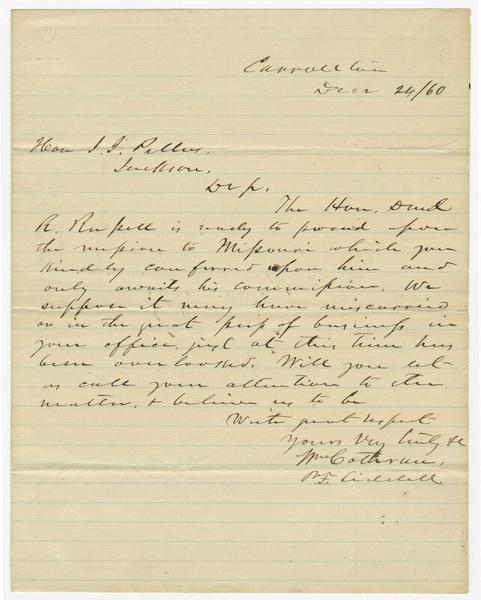 Carrollton
Decr 24/60
Hon J. J. Pettus,
Jackson,
Dr Sir.
The Hon. Danl
R. Russell is ready to proceed upon
the mission to Missouri which you
kindly conferred upon him and
only awaits his commission. We
suppose it may have miscarried
or in the great press of business in
your office just at this time has
been overlooked. Will you let
us call your attention to the
matter, & believe us to be
With great respect
Yours Very truly &c
Wm Cothran,
P. F. Liddell